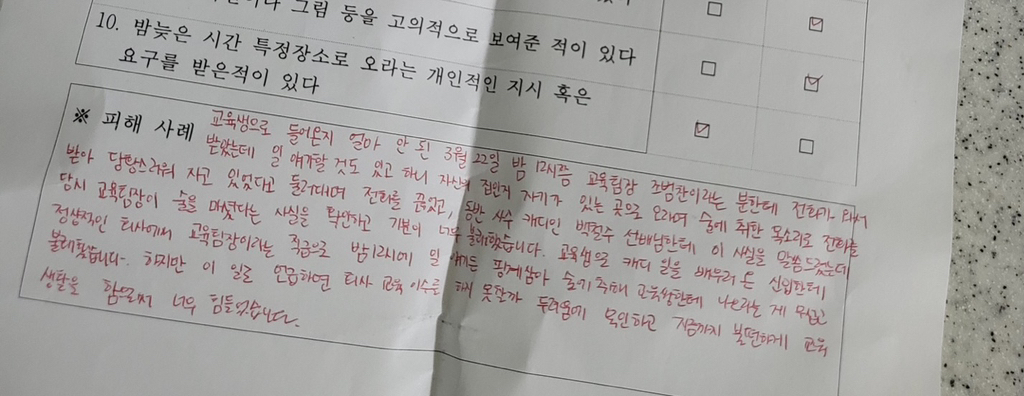 그림 등을 고의적으로 보여준 적이 있다
10. 밤늦은 시간 특정장소로 오라는 개인적인 지시 혹은
요구를 받은적이 있다
※ 피해 사례 교육생으로 들어온지 얼마 안 된 3월 22일 밤 12시쯤 교육팀장 조범찬이라는 분한테 전화가 와서
받았는데 일 얘기할 것도 있고 하니 자신의 집인지 자기가 있는 곳으로 오라며 술에 취한 목소리로 전화를
받아 당황스러워 자고 있었다고 둘러대며 전화를 끊었고, 동반 사수 캐디인 백철수 선배님한테 이 사실을 말씀드렸는데
당시 교육팀장이 술을 마셨다는 사실을 확인하고 기분이 너무 불쾌했습니다. 교육생으로 캐디 일을 배우러 온 신입한테
정상적인 회사에서 교육팀장이라는 직급으로 밤 12시에 일 얘기든 핑계삼아 술 취해 교육생한테 나오라는 게 무섭고
불쾌했습니다. 하지만 이 일로 언급하면 회사 교육 이수를 하지 못할까 두려움에 묵인하고 지금까지 불편하게 교육
생활을 함으로써 너무 힘들었습니다.